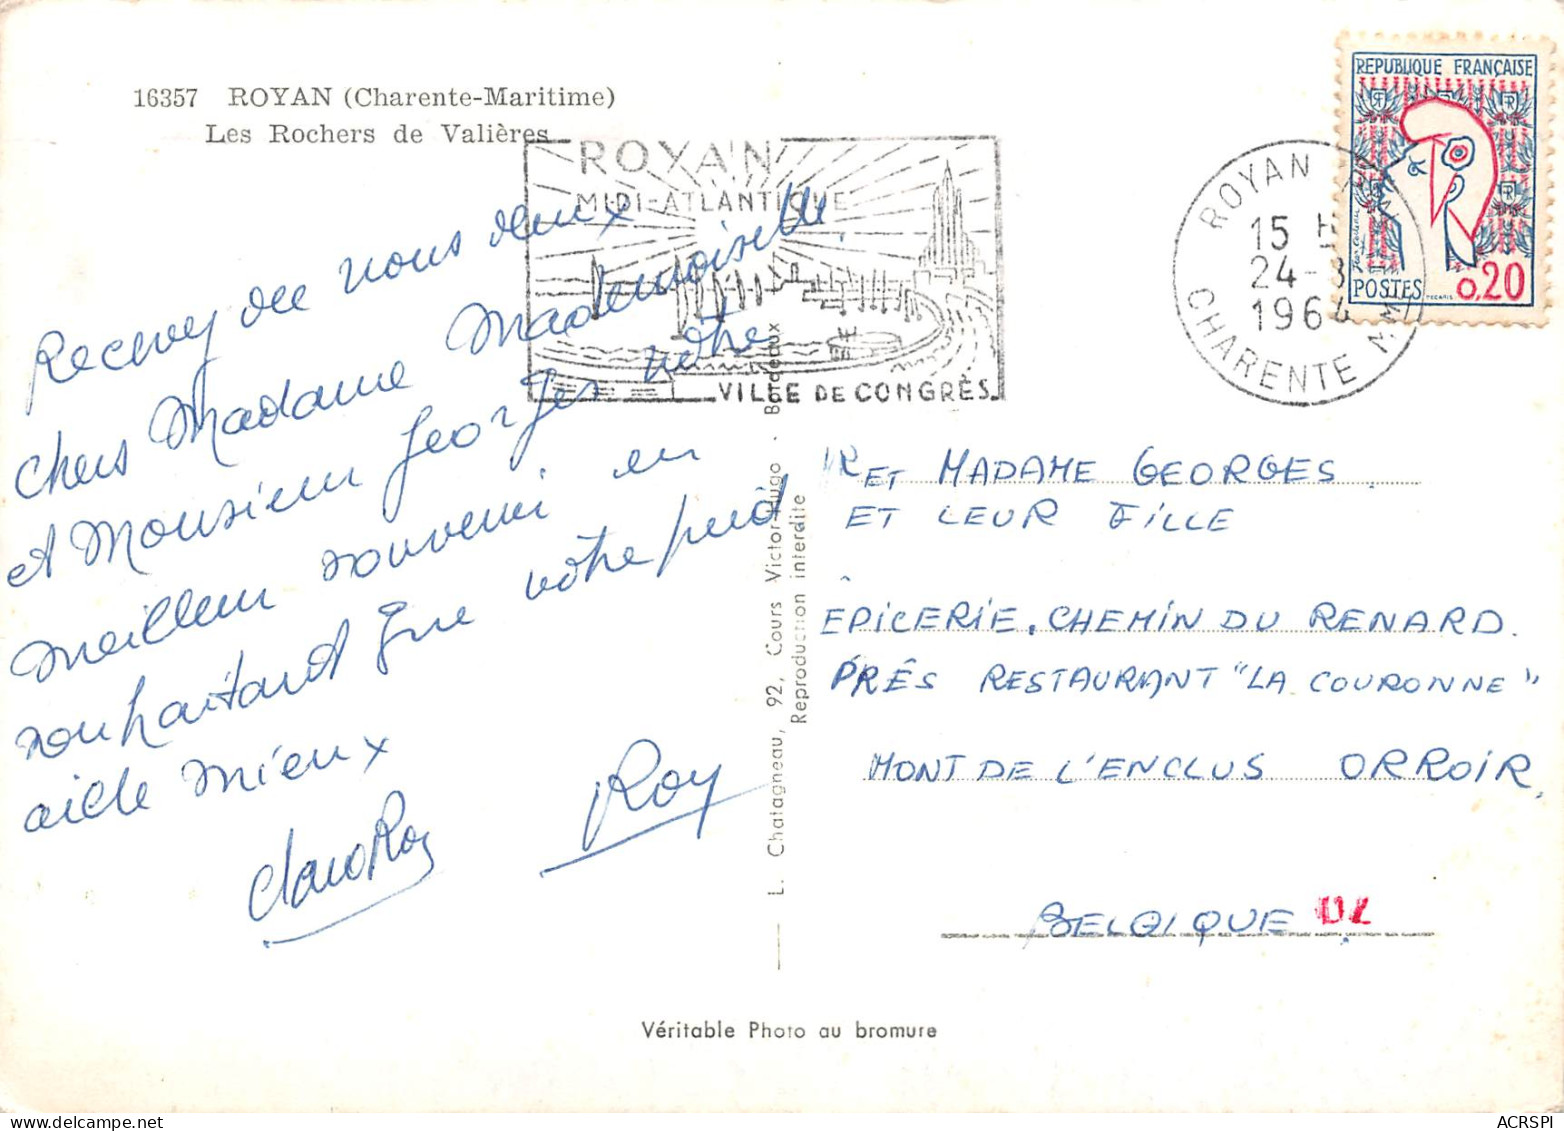 16357 ROYAN (Charente-Maritime)
Les Rochers de Valières
ROYAN
MIDI-ATLANTIQUE
VILLE DE CONGRÈS
ROYAN
15 H
24-8
1964
CHARENTE MME
REPUBLIQUE FRANÇAISE
POSTES 0,20
Recevez de nous deux
chers Madame Mademoiselle,
et Monsieur Georges notre
meilleur souvenir en
souhaitant que votre
aille mieux
Roy
L. Chatagneau, 92, Cours Victor-Hugo - Bordeaux
Reproduction interdite
MR ET MADAME GEORGES
ET LEUR FILLE
EPICERIE, CHEMIN DU RENARD.
PRÉS RESTAURANT "LA COURONNE"
MONT DE L'ENCLUS ORROIR,
BELGIQUE
Véritable Photo au bromure
ACRSPI